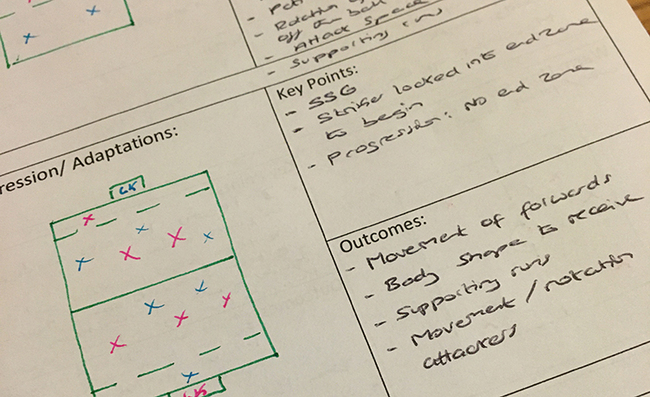 - Rotation
off the ball
- Attack space
- Supporting runs
Key Points:
- SSG
- Striker locked into end zone
to begin
- Progression: No end zone
ression/ Adaptations:
GK
Outcomes:
- Movement of forwards
- Body shape to receive
- Supporting runs
- Movement / rotation
attackers